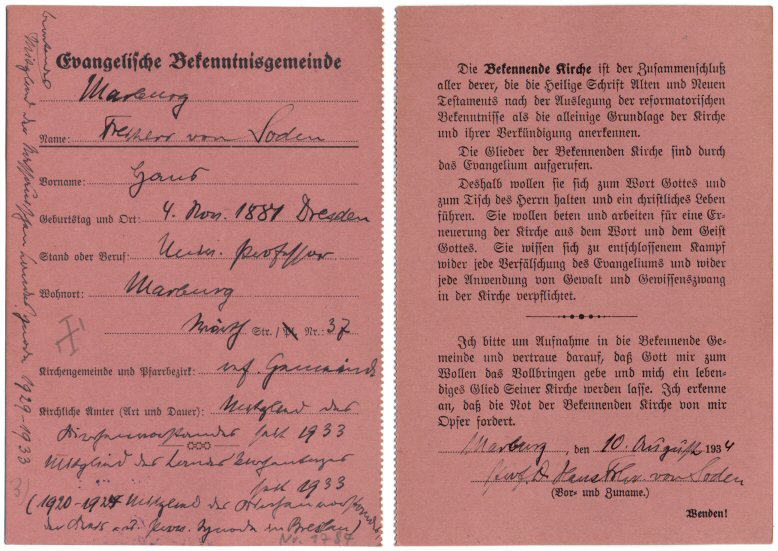 Evangelische Bekenntnisgemeinde
Marburg
Name: Freiherr von Soden
Vorname: Hans
Geburtstag und Ort: 4. Nov. 1881 Dresden
Stand oder Beruf: Univ. Professor
Wohnort: Marburg
Wörth Str./Pl. Nr.: 37
Kirchengemeinde und Pfarrbezirk: ref. Gemeinde
Kirchliche Ämter (Art und Dauer): Mitglied des
Kirchenvorstandes seit 1933
Mitglied des Landeskirchentages
seit 1933
(1920-1924 Mitglied des Kirchenvorstandes,
der Kreis- u. Prov. Synode in Breslau)
No. 1784
Mitglied der Landessynode 1929-1933
Die Bekennende Kirche ist der Zusammenschluß
aller derer, die die Heilige Schrift Alten und Neuen
Testaments nach der Auslegung der reformatorischen
Bekenntnisse als die alleinige Grundlage der Kirche
und ihrer Verkündigung anerkennen.
Die Glieder der Bekennenden Kirche sind durch
das Evangelium aufgerufen.
Deshalb wollen sie sich zum Wort Gottes und
zum Tisch des Herrn halten und ein christliches Leben
führen. Sie wollen beten und arbeiten für eine Er-
neuerung der Kirche aus dem Wort und dem Geist
Gottes. Sie wissen sich zu entschlossenem Kampf
wider jede Verfälschung des Evangeliums und wider
jede Anwendung von Gewalt und Gewissenszwang
in der Kirche verpflichtet.
Ich bitte um Aufnahme in die Bekennende Ge-
meinde und vertraue darauf, daß Gott mir zum
Wollen das Vollbringen gebe und mich ein leben-
diges Glied Seiner Kirche werden lasse. Ich erkenne
an, daß die Not der Bekennenden Kirche von mir
Opfer fordert.
Marburg, den 10. August 1934
Prof. D. Hans Frhr. von Soden
(Vor- und Zuname.)
Wenden!